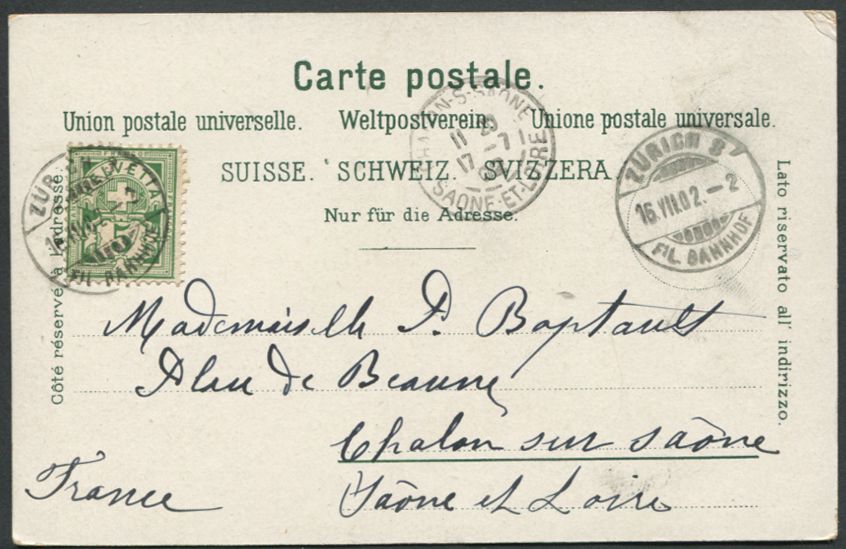 Carte postale.
Union postale universelle. Weltpostverein. Unione postale universale.
SUISSE. SCHWEIZ. SVIZZERA.
Nur für die Adresse.
Côté réservé à l'adresse.
Lato riservato all' indirizzo.
HELVETIA
5
FIL. BAHNHOF
CHALON-S-SAÔNE
SAONE-ET-LOIRE
ZÜRICH
16.VII.02.-2
FIL. BAHNHOF
Mademoiselle P. Baptault
Place de Beaune
Chalon sur Saône
Saône et Loire
France